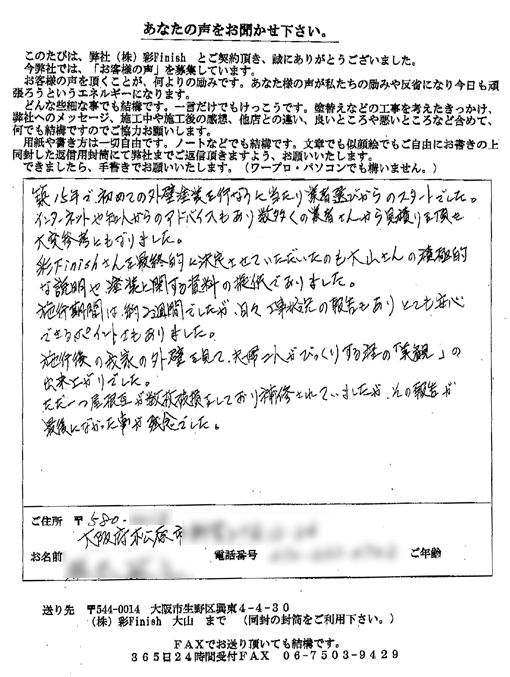 あなたの声をお聞かせ下さい。
このたびは、弊社（株）彩Finish とご契約頂き、誠にありがとうございました。
今弊社では、「お客様の声」を募集しています。
お客様の声を頂くことが、何よりの励みです。あなた様の声が私たちの励みや反省になり今日も頑
張ろうというエネルギーになります。
どんな些細な事でも結構です。一言だけでもけっこうです。塗替えなどの工事を考えたきっかけ、
弊社へのメッセージ、施工中や施工後の感想、他店との違い、良いところや悪いところなど含めて、
何でも結構ですのでご協力お願いします。
用紙や書き方は一切自由です。ノートなどでも結構です。文章でも似顔絵でもご自由にお書きの上
同封した返信用封筒にて弊社までご返信頂きますよう、お願い致します。
できましたら、手書きでお願いいたします。（ワープロ・パソコンでも構いません。）
築15年で、初めての外壁塗装を行なうに当たり業者選びからのスタートでした。
インターネットや知人からのアドバイスもあり数多くの業者さんから見積りを頂き
大変参考ともなりました。
彩Finishさんを最終的に決定させていただいたのも大山さんの積極的
な説明や塗装に関する資料の提供でありました。
施行期間は約2週間でしたが、日々工事状況の報告もありとても安心
できるポイントでもありました。
施行後の我家の外壁を見て、夫婦二人がびっくりする程の「美観」の
出来上がりでした。
ただ一つ屋根瓦が数枚破損をしており補修されていましたが、その報告が
最後になかった事が残念でした。
ご住所 〒580-
大阪府松原市
お名前 電話番号 ご年齢
送り先 〒544-0014 大阪市生野区巽東4-4-30
（株）彩Finish 大山 まで （同封の封筒をご利用下さい。）
FAXでお送り頂いても結構です。
365日24時間受付FAX 06-7503-9429